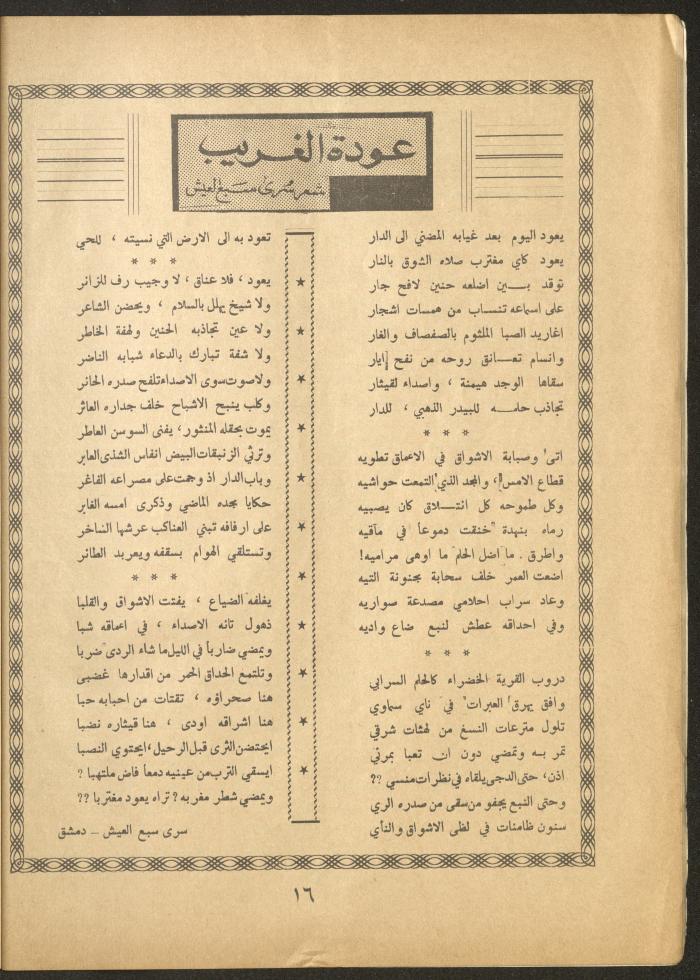 عودة الغريب
شعر سرى سبع العيش
يعود اليوم بعد غيابه المضني الى الدار
يعود كاي مغترب صلاه الشوق بالنار
توقد بين اضلعه حنين لافح جار
على اسماعه تنساب من همسات اشجار
اغاريد الصبا الملثوم بالصفصاف والغار
وانسام تعانق روحه من نفح إيار
سقاها الوجد هيمنة ، واصداء لقيثار
تجاذب حلمه للبيدر الذهبي ، للدار
* * *
اتى وصبابة الاشواق في الاعماق تطويه
قطاع الامس، والمجد الذي التمعت حواشيه
وكل طموحه كل انتلاق كان يصبيه
رماه بنهدة خنقت دموعا في مآقيه
واطرق . ما اضل الحلم ما اوهى مراميه!
اضعت العمر خلف سحابة مجنونة التيه
وعاد سراب احلامي مصدعة صواريه
وفي احداقه عطش لنبع ضاع واديه
* * *
دروب القرية الخضراء كالحلم السرابي
وافق يهرق العبرات في ناي سماوي
تلول مترعات النسغ من لهثات شرقي
تمر به وتمضي دون ان تعبا بمرئي
اذن، حتى الدجى يلقاه في نظرات منسي ??
وحتى النبع يجفو من سقى من صدره الري
سنون ظامئات في لظى الاشواق والنأي
تعود به الى الارض التي نسيته ، للحي
* * *
يعود ، فلا عناق ، لا وجيب رف للزائر
ولا شيخ يهلل بالسلام ، ويحضن الشاعر
ولا عين تجاذبه الحنين ولهفة الخاطر
ولا شفة تبارك بالدعاء شبابه الناضر
ولاصوت سوى الاصداء تلفح صدره الحائر
وكلب ينبح الاشباح خلف جداره العاثر
يموت بحقله المنثور، يفنى السوسن العاطر
وترثي الزنبقات البيض انفاس الشذى العابر
وباب الدار اذ وجمت على مصراعه الفاغر
حكايا مجده الماضي وذكرى امسه الغابر
على ارفافه تبني العناكب عرشها الساخر
وتستلقي الهوام بسقفه ويعربد الطائر
* * *
يغلفه الضياع ، يفتت الاشواق والقلبا
ذهول تائه الاصداء ، في اعماقه شبا
ويمضي ضاربا في الليل ما شاء الردى ضربا
وتلتمع الحداق الحمر من اقدارها غضبى
هنا صحراؤه ، تقتات من احبابه حبا
هنا اشراقه اودى ، هنا قيثاره نضبا
ايحتضن الثرى قبل الرحيل، ايحتوي النصبا
ايسقي الترب من عينيه دمعا فاض ملتهبا ?
ويمضي شطر مغربه ? تراه يعود مغتربا ??
سرى سبع العيش – دمشق
١٦